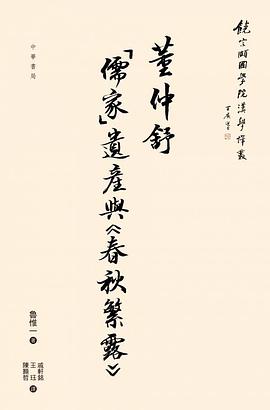 饒宗頤國學院漢學譯叢
董仲舒
「儒家」遺產與《春秋繁露》
中華書局
魯惟一 著
戚軒銘
王珏 譯
陳顥哲